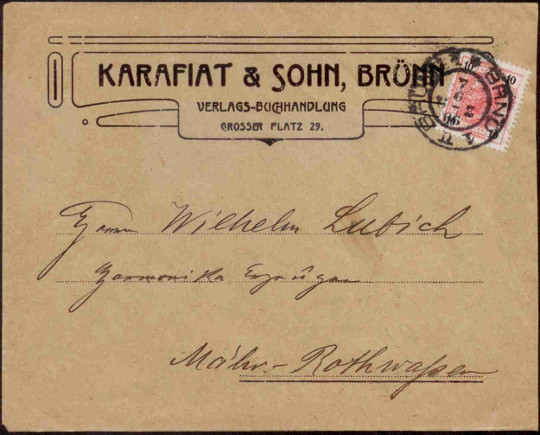 KARAFIAT & SOHN, BRÜNN
VERLAGS-BUCHHANDLUNG
GROSSER PLATZ 29.
10
BRNO
BRÜNN
Herrn Wilhelm Lubich
Harmonika Erzeuger
Mähr.-Rothwasser